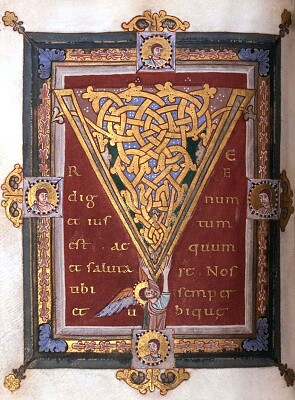 V R E
dig num
et ius tum
est. ae quum
et saluta re. Nos
tibi semper
et u bique